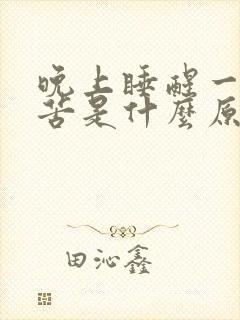 晚上睡醒一
苦是什麼原
田沁鑫